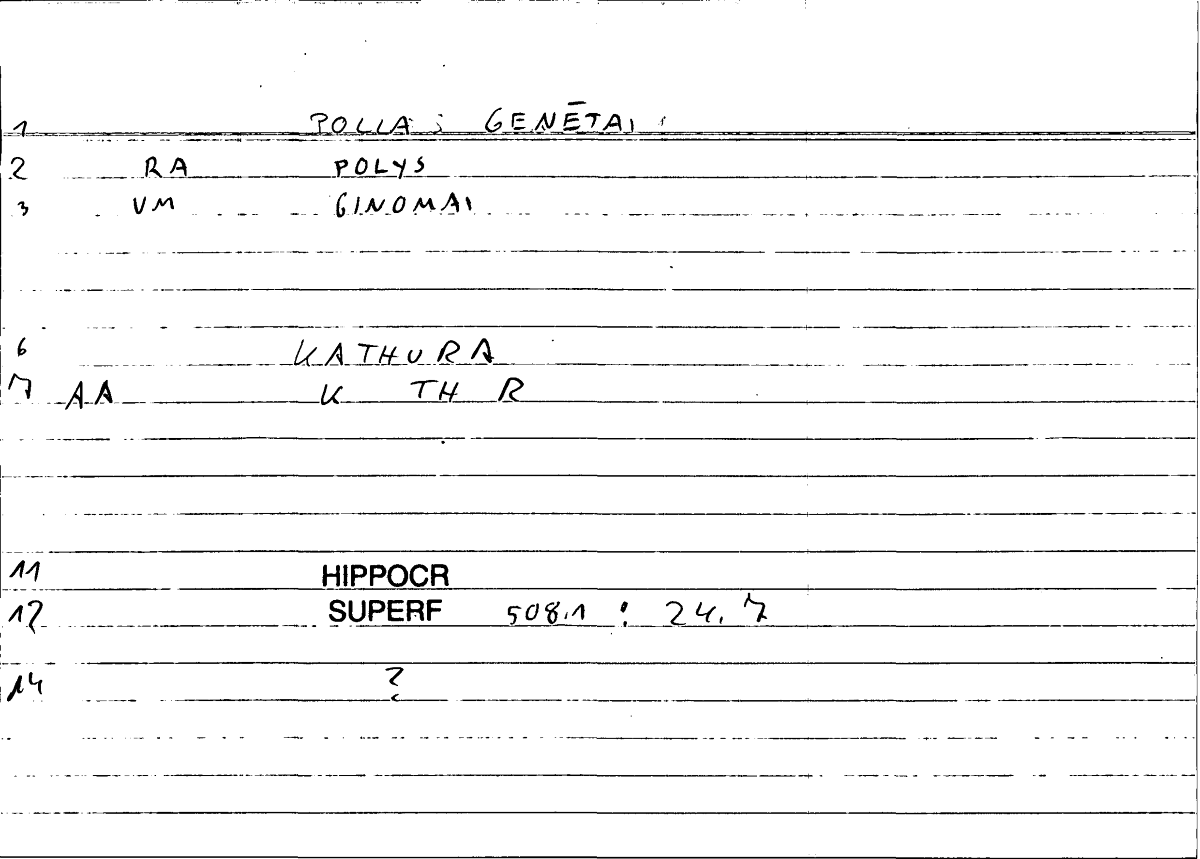 1 POLLA ; GENĒTAI :
2 RA POLYS
3 VM GINOMAI
6 KATHURA
7 AA K TH R
11 HIPPOCR
12 SUPERF 508.1 : 24.7
14 ?